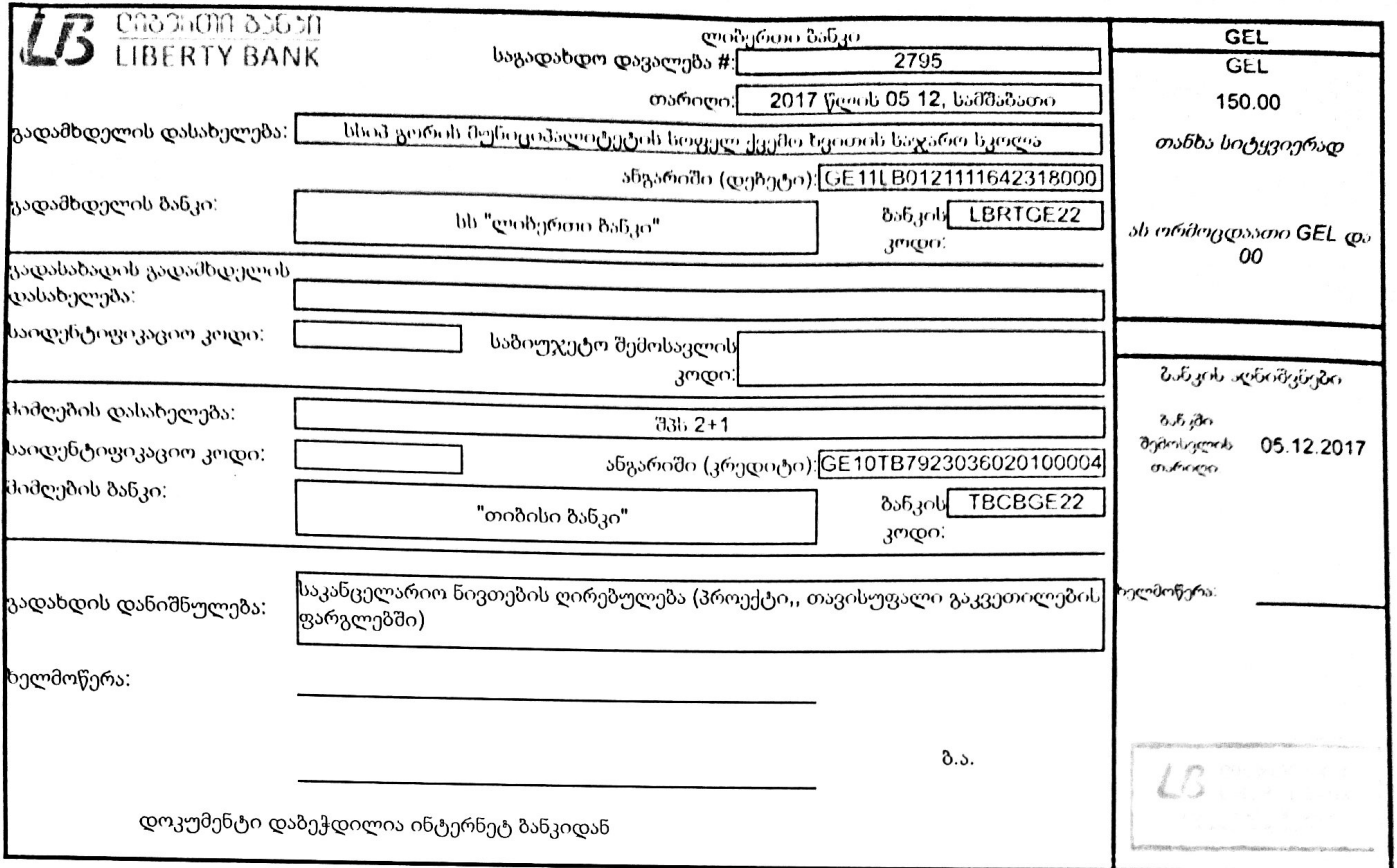 ლიბერთი ბანკი
LIBERTY BANK
ლიბერთი ბანკი
საგადახდო დავალება #: 2795
თარიღი: 2017 წლის 05 12, სამშაბათი
გადამხდელის დასახელება: სსიპ გორის მუნიციპალიტეტის სოფელ ქვემო ხვითის საჯარო სკოლა
ანგარიში (დებეტი): GE11LB0121111642318000
გადამხდელის ბანკი: სს "ლიბერთი ბანკი" ბანკის კოდი: LBRTGE22
გადასახადის გადამხდელის
დასახელება:
საიდენტიფიკაციო კოდი: საბიუჯეტო შემოსავლის
კოდი:
მიმღების დასახელება: შპს 2+1
საიდენტიფიკაციო კოდი: ანგარიში (კრედიტი): GE10TB7923036020100004
მიმღების ბანკი: "თიბისი ბანკი" ბანკის კოდი: TBCBGE22
გადახდის დანიშნულება: საკანცელარიო ნივთების ღირებულება (პროექტი,, თავისუფალი გაკვეთილების
ფარგლებში)
ხელმოწერა:
ბ.ა.
დოკუმენტი დაბეჭდილია ინტერნეტ ბანკიდან
GEL
GEL
150.00
თანხა სიტყვიერად
ას ორმოცდაათი GEL და
00
ბანკის აღნიშვნები
ბანკში
შემოსვლის 05.12.2017
თარიღი
ხელმოწერა:
LB